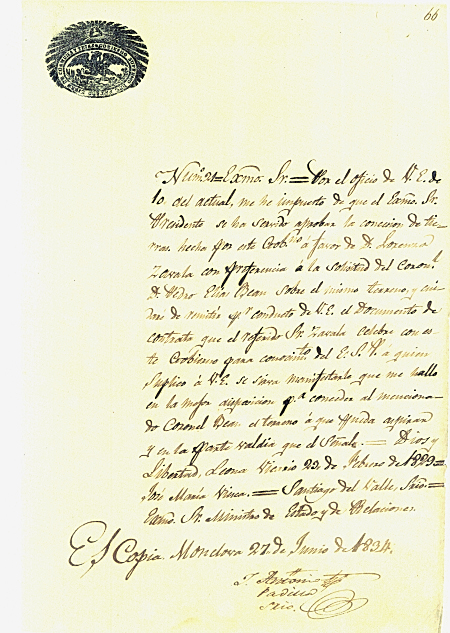 66
Num. 21 = Exmo. Sr. = Por el oficio de V. E. de
10. del actual, me he impuesto de que el Exmo. Sr.
Presidente se ha servido aprobar la concecion de tie-
rras hecha por este Gobno. á favor de D. Lorenzo
Zavala con preferencia á la solicitud del Coronl.
D. Pedro Elias Bean sobre el mismo terreno, y cui-
daré de remitir pr. conducto de V. E. el Documento de
contrata que el referido Sr. Zavala celebre con es-
te Gobierno para conocimto. del E. S. P. a quien
suplico á V. E. se sirva manifestarle que me hallo
en la mejor disposicion pa. conceder al menciona-
do Coronel Bean el terreno á que pueda aspirar
y en la parte valdia que el señale. = Dios y
Libertad. Leona Vicario 23 de Febrero de 1829 =
José María Viesca. = Santiago del Valle, Srio. =
Exmo. Sr. Ministro de Estado y de Relaciones.
Es Copia. Monclova 27 de Junio de 1834.
J. Antonio
Padilla
Srio.